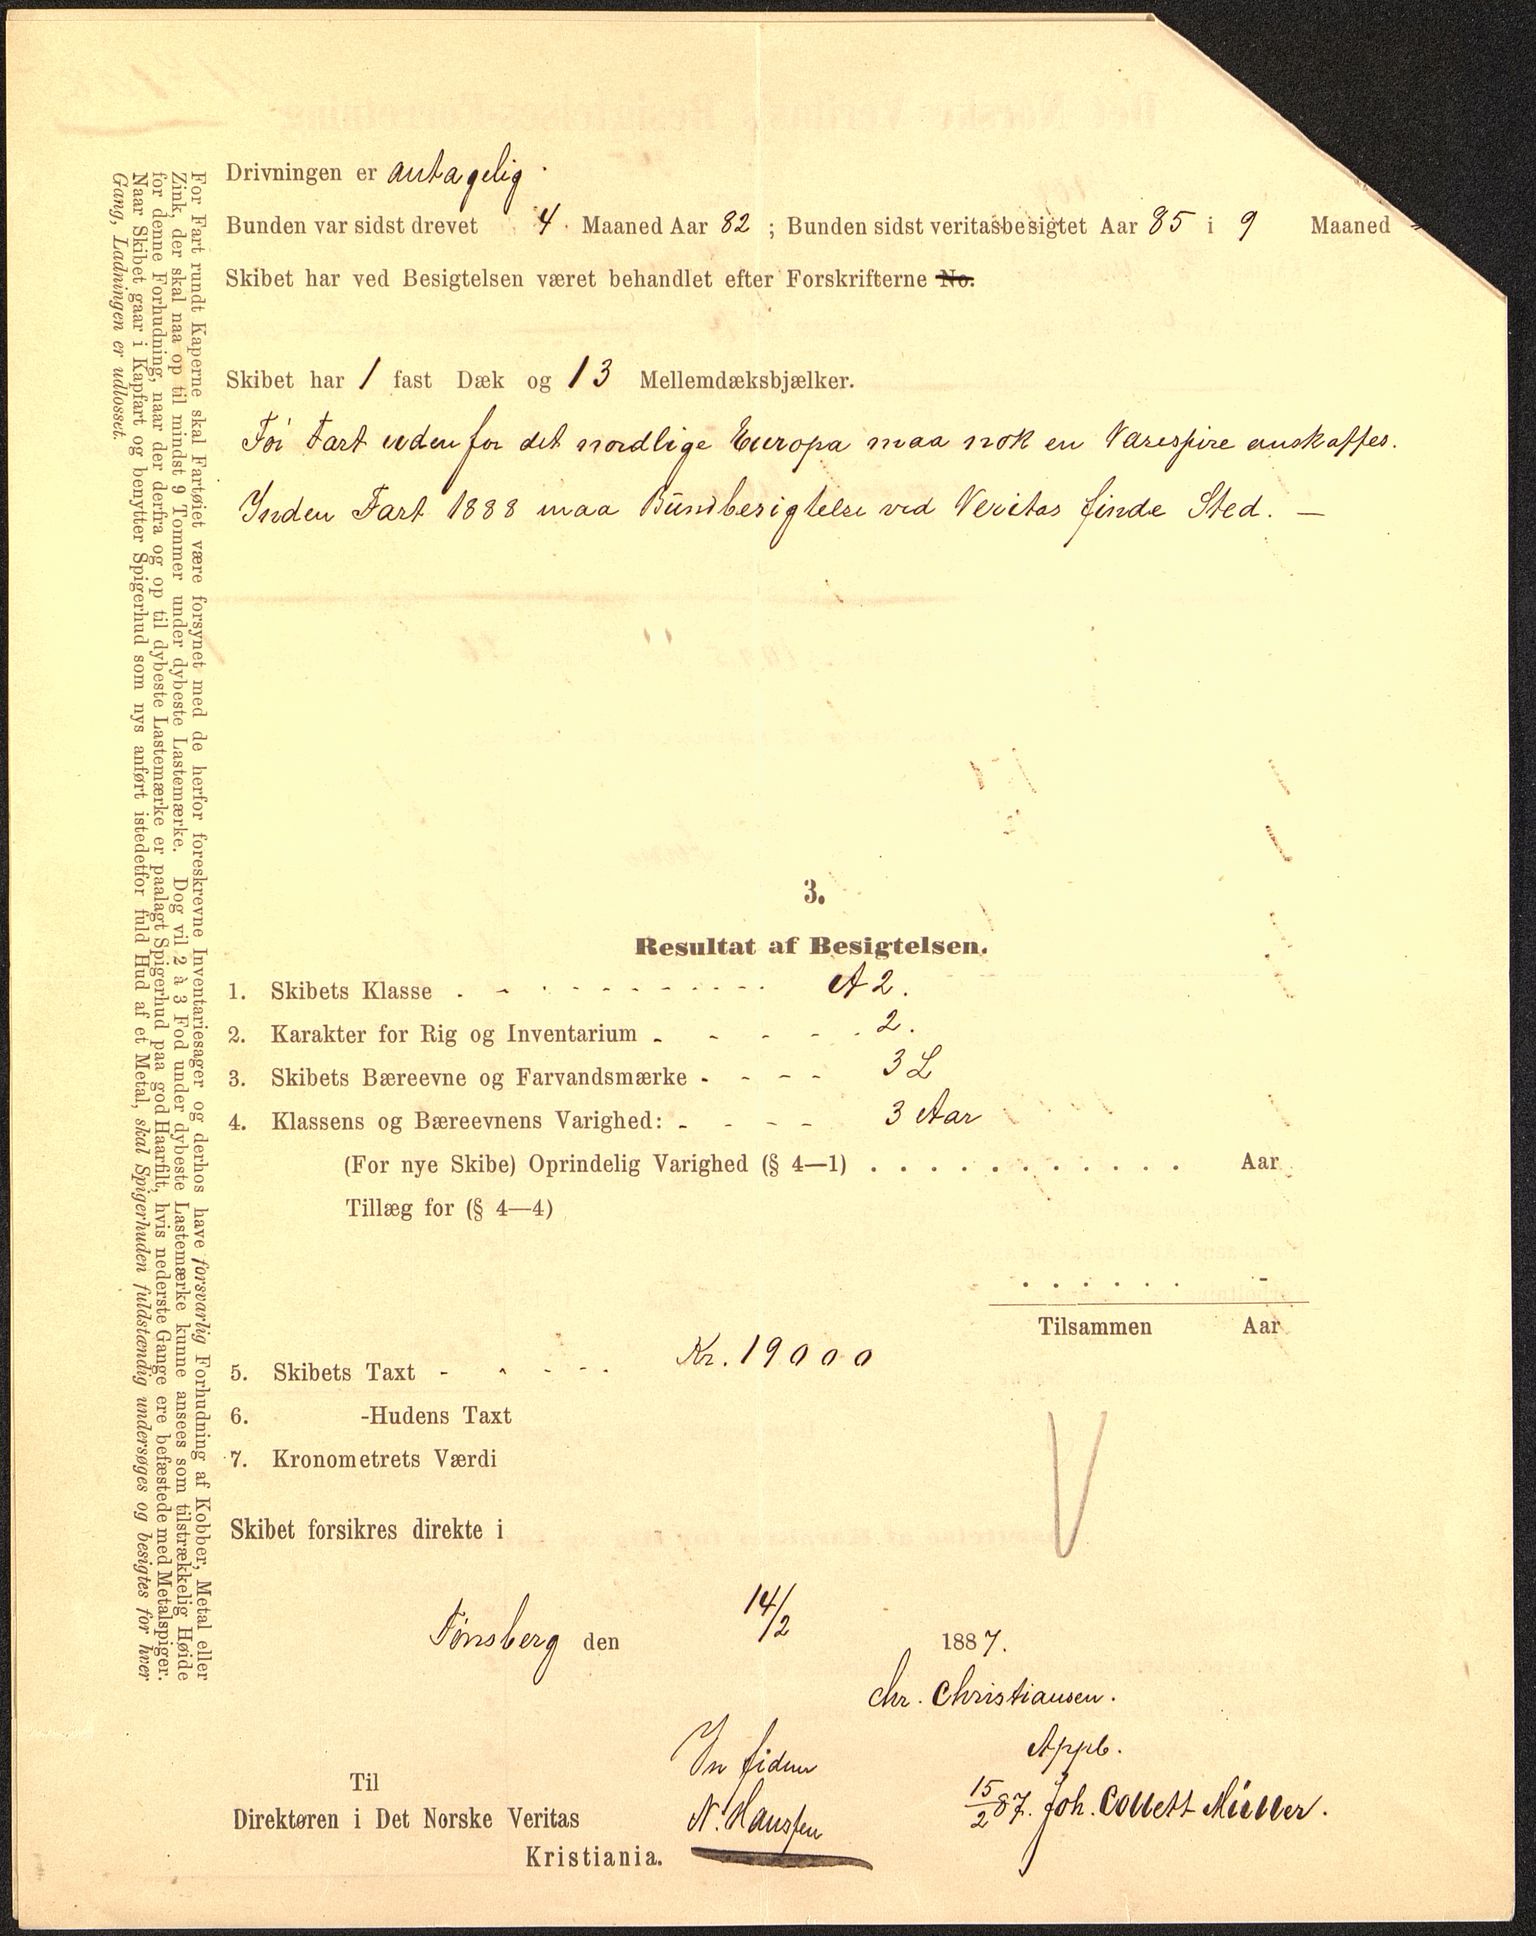 Drivningen er antagelig.
Bunden var sidst drevet 4 Maaned Aar 82 ; Bunden sidst veritasbesigtet Aar 85 i 9 Maaned
Skibet har ved Besigtelsen været behandlet efter Forskrifterne No.
Skibet har 1 fast Dæk og 13 Mellemdæksbjælker.
För Fart uden for det nordlige Europa maa nok en Varespire anskaffes.
Inden Fart 1888 maa Bundbesigtelse ved Veritas finde Sted. —
3.
Resultat af Besigtelsen.
1. Skibets Klasse . - - . - - - - - - - A 2.
2. Karakter for Rig og Inventarium - - - - - 2.
3. Skibets Bæreevne og Farvandsmærke - - - - 3 L
4. Klassens og Bæreevnens Varighed: - - - - 3 Aar
(For nye Skibe) Oprindelig Varighed (§ 4—1) . . . . . . . . . . . Aar
Tillæg for (§ 4—4)
. . . . . . -
Tilsammen Aar
5. Skibets Taxt - - - - - Kr. 19000
6. -Hudens Taxt
7. Kronometrets Værdi
Skibet forsikres direkte i
Tønsberg den 14/2 1887.
Chr. Christiansen.
In fidem
N. Hanssen
Appb.
15/2 87. Joh. Collett Müller.
Til
Direktøren i Det Norske Veritas
Kristiania.
For Fart rundt Kaperne skal Fartøiet være forsynet med de herfor foreskrevne Inventariesager og derhos have forsvarlig Forhudning af Kobber, Metal eller
Zink, der skal naa op til mindst 9 Tommer under dybeste Lastemærke. Dog vil 2 à 3 Fod under dybeste Lastemærke kunne ansees som tilstrækkelig Høide
for denne Forhudning, naar der derfra og op til dybeste Lastemærke er paalagt Spigerhud paa god Haarfilt, hvis nederste Gange ere befæstede med Metalspiger.
Naar Skibet gaar i Kapfart og benytter Spigerhud som nys anført istedetfor fuld Hud af et Metal, skal Spigerhuden fuldstændig undersøges og besigtes for hver
Gang, Ladningen er udlosset.